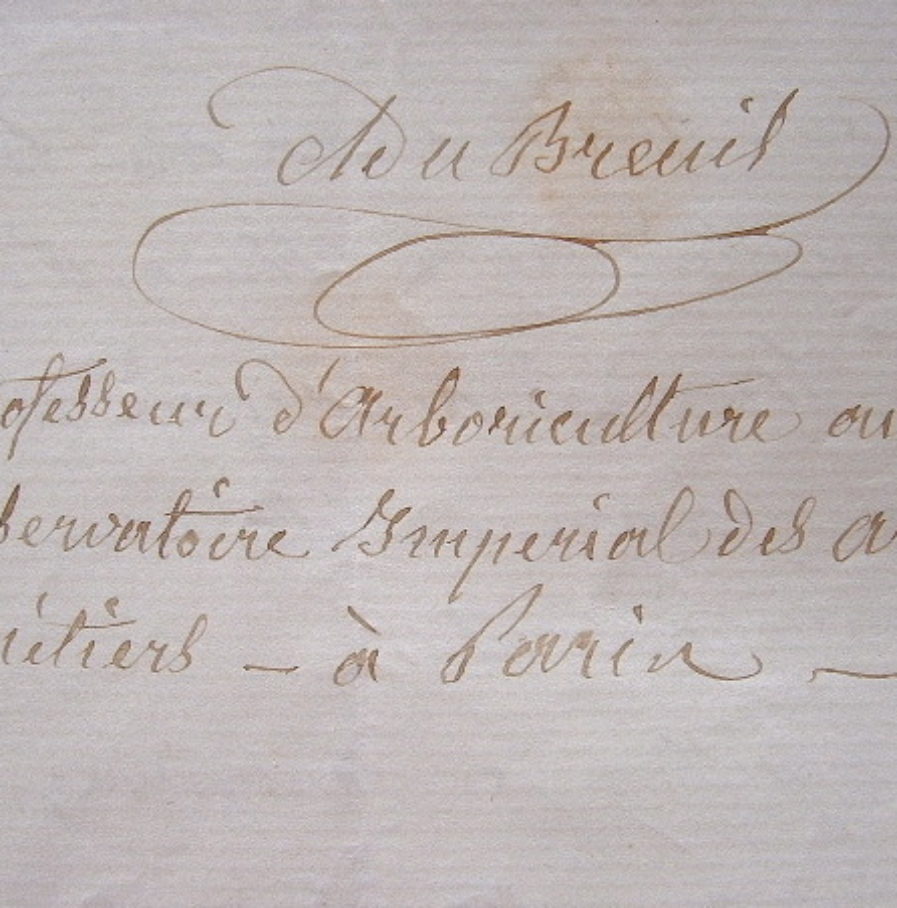 A Du Breuil
ofesseur d'Arboriculture au
servatoire Imperial des a
nétiers - à Paris -